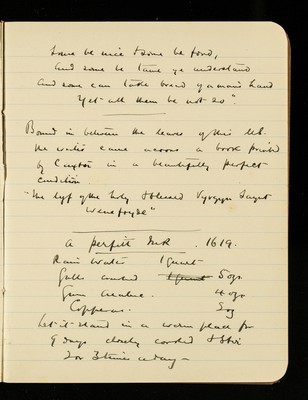 Some be nice & some be fond,
And some be tame ye understand
And some can take bread of a mans hand
Yet all them be not so".
Bound in between the leaves of this MS.
the writer came across a book printed
by Caxton in a beautifully perfect
condition.
"The lyf of the holy & blessed Vyrgyn Saynt
Wenefryde"
A perfitt Ink. 1619.
Rain water 1 quart
Galls 5 ozs
Gum Arabic. 4 ozs
Copperas. 3 oz
Let it stand in a warm place for
9 days closely covered & stir
2 or 3 times a day —